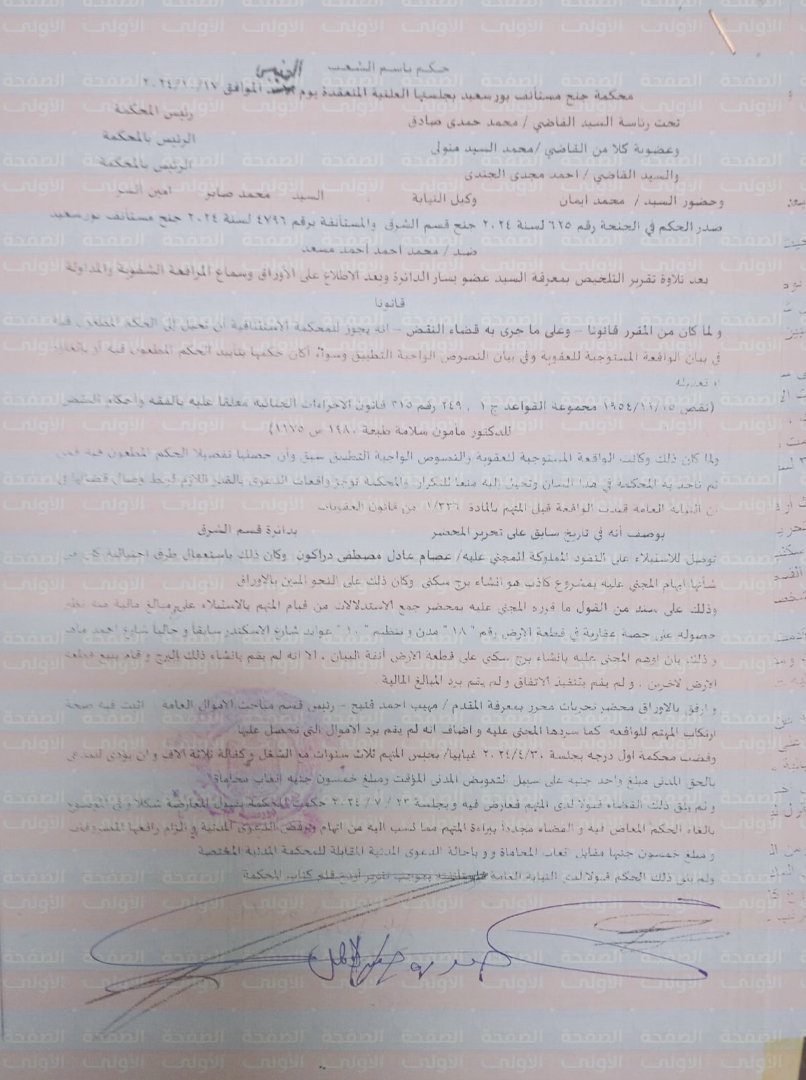 حكم باسم الشعب
محكمة جنح مستأنف بورسعيد بجلستها العلنية المنعقدة يوم الخميس الموافق ٢٠٢٤/١٠/١٧
تحت رئاسة السيد القاضي / محمد حمدى صادق رئيس المحكمة
وعضوية كلا من القاضي /محمد السيد متولى الرئيس بالمحكمة
والسيد القاضي / احمد مجدى الجندى الرئيس بالمحكمة
وحضور السيد / محمد ايمان وكيل النيابة السيد محمد صابر امين السر
صدر الحكم في الجنحة رقم ٦٢٥ لسنة ٢٠٢٤ جنح قسم الشرق والمستأنفة برقم ٤٧٩٦ لسنة ٢٠٢٤ جنح مستأنف بورسعيد
ضد / محمد احمد احمد مسعد
بعد تلاوة تقرير التلخيص بمعرفة السيد عضو يسار الدائرة وبعد الاطلاع على الأوراق وسماع المرافعة الشفوية والمداولة
قانونا
و لما كان من المقرر قانونا – وعلى ما جرى به قضاء النقض – انه يجوز للمحكمة الاستئنافية ان تحيل إلى الحكم المطعون فيه
في بيان الواقعة المستوجبة للعقوبة وفى بيان النصوص الواجبة التطبيق وسواء أكان حكمها بتأييد الحكم المطعون فيه أو بالغائه
او تعديله
(نقض ١٩٥٤/١١/١٥ مجموعة القواعد ج ١ ، ٢٤٩ رقم ٣١٥ قانون الاجراءات الجنائية معلقا عليه بالفقه وأحكام النقض
للدكتور مأمون سلامة طبعة ١٩٨٠ ص ١١٧٥)
ولما كان ذلك وكانت الواقعة المستوجبة للعقوبة والنصوص الواجبة التطبيق سبق وأن حصلها تفصيلا الحكم المطعون فيه فمن
ثم تأخذ به المحكمة في هذا البيان وتحيل إليه منعا للتكرار والمحكمة توجز واقعات الدعوى بالقدر اللازم لربط وصال قضائها في
ان النيابة العامة قدمت الواقعة قبل المتهم بالمادة ١/٣٣٦ من قانون العقوبات
بوصف أنه في تاريخ سابق على تحرير المحضر بدائرة قسم الشرق
توصل للاستيلاء على النقود المملوكة المجني عليه/ عصام عادل مصطفى دراكون وكان ذلك باستعمال طرق احتيالية كان من
شأنها ايهام المجني عليه بمشروع كاذب هو انشاء برج سكنى وكان ذلك على النحو المبين بالاوراق
وذلك على سند من القول ما قرره المجنى عليه بمحضر جمع الاستدلالات من قيام المتهم بالاستيلاء على مبالغ مالية منه نظير
حصوله على حصة عقارية في قطعة الارض رقم "١٨" مدن و تنظيم "١٠" عوايد شارع الاسكندر سابقا و حاليا شارع احمد ماهر
و ذلك بان اوهم المجنى عليه بانشاء برج سكنى على قطعة الارض آنفة البيان . الا انه لم يقم بانشاء ذلك البرج و قام ببيع قطعة
الارض لاخرين . و لم يقم بتنفيذ الاتفاق و لم يقم برد المبالغ المالية
و ارفق بالاوراق محضر تحريات محرر بمعرفة المقدم / مهيب احمد فليح – رئيس قسم مباحث الاموال العامة اثبت فيه صحة
ارتكاب المتهم للواقعة كما سردها المجنى عليه و اضاف انه لم يقم برد الاموال التى تحصل عليها
وقضت محكمة اول درجه بجلسة ٢٠٢٤/٤/٣٠ غيابيا/ بحبس المتهم ثلاث سنوات مع الشغل و كفالة ثلاثة الاف و ان يؤدى للمدعى
بالحق المدنى مبلغ واحد جنيه على سبيل التعويض المدنى المؤقت ومبلغ خمسون جنيه اتعاب محاماة
و لم يلق ذلك القضاء قبولا لدى المتهم فعارض فيه و بجلسة ٢٣ / ٧ / ٢٠٢٤ حكمت المحكمة بقبول المعارضة شكلا و في الموضوع
بالغاء الحكم المعارض فيه و القضاء مجددا ببراءة المتهم مما نسب اليه من اتهام و برفض الدعوى المدنية و الزام رافعها المصروفات
و مبلغ خمسون جنيها مقابل اتعاب المحاماة و و باحالة الدعوى المدنية المقابلة للمحكمة المدنية المختصة
ولم يلق ذلك الحكم قبولا لدى النيابة العامة فاستأنفته بموجب تقرير أودع قلم كتاب المحكمة